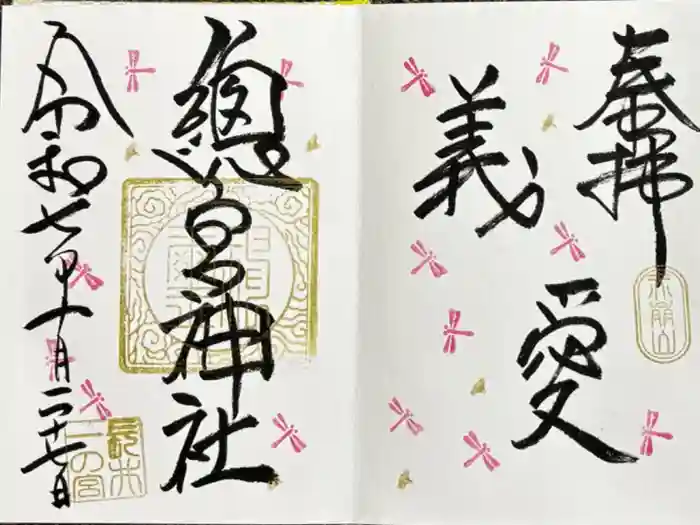 奉拝
義
愛
總宮神社
令和七年十月二十七日
長井
一の宮